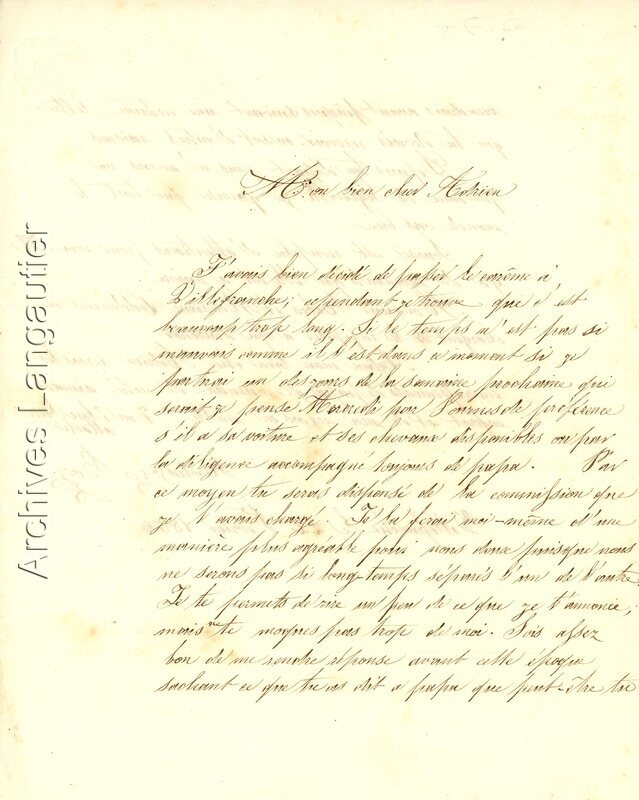 Mon bien cher Adrien
J'avais bien décidé de passer le carême à
Villefranche; cependant je trouve que c'est
beaucoup trop long. Si le temps n'est pas si
mauvais comme il l'est dans ce moment si je
partirai un des jours de la semaine prochaine qui
serait je pense Mercredi par de préférence
s'il a sa voiture et ses chevaux disponibles ou par
la diligence accompagné toujours de papa. Par
ce moyen tu serais dispensé de la commission que
je t'avais chargé. Je la ferai moi-même d'une
manière plus agréable pour nous deux puisque nous
ne serons pas si long-temps séparés l'un de l'autre.
Je te permets de rire un peu de ce que je t'annonce,
mais ne te moques pas trop de moi. Sois assez
bon de me rendre réponse avant cette époque
sachant ce que tu as dit à papa que peut-être tu
Archives Langautier